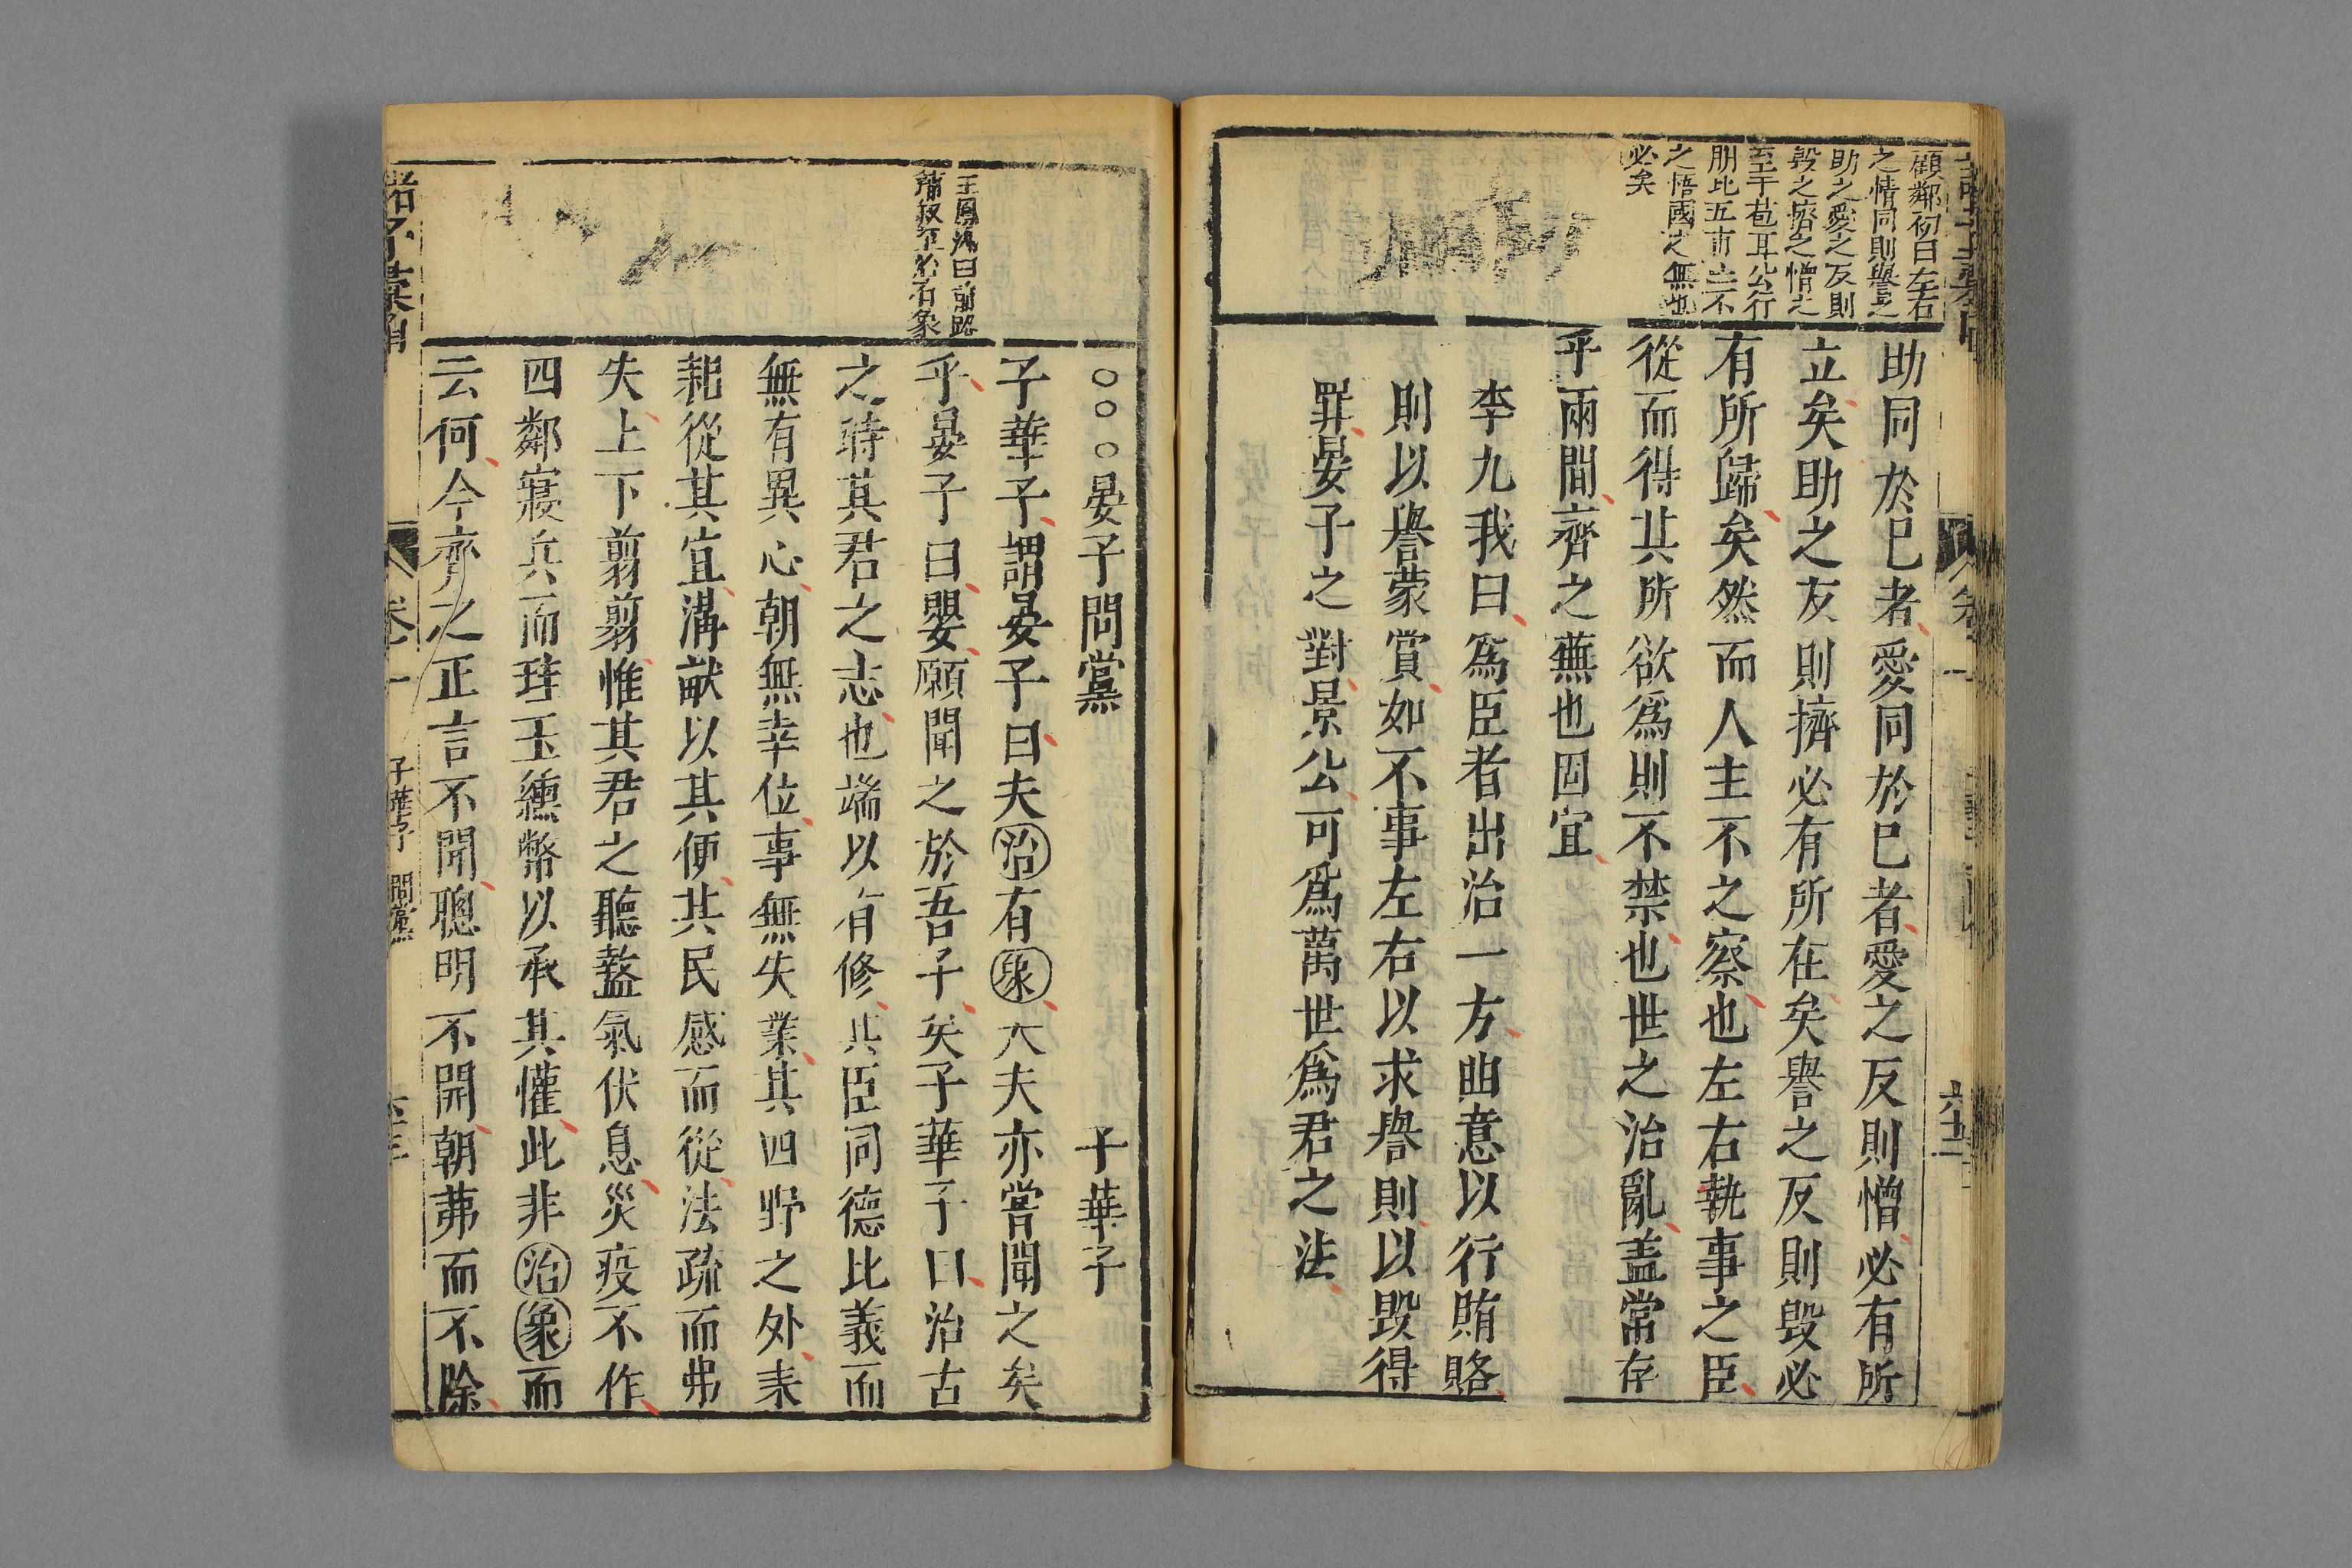 顧鄰初曰左右
之情同則譽之
助之愛之反則
毀之擠之憎之
至于苞苴公行
朋比五市上不
之悟國之無也
必矣
助同於已者愛同於已者愛之反則憎必有所
立矣助之友則擠必有所在矣譽之反則毀必
有所歸矣然而人主不之察也左右執事之臣
從而得其所欲爲則不禁也世之治亂盖常存
乎兩間齊之蕪也固宜
李九我曰爲臣者出治一方曲意以行賄賂
則以譽蒙賞如不事左右以求譽則以毀得
罪晏子之對景公可爲萬世爲君之法
卷一
六十二
王鳳洲曰前路
○○○晏子問黨 子華子
子華子謂晏子曰夫治有象大夫亦嘗聞之矣
乎晏子曰嬰願聞之於吾子矣子華子曰治古
之時其君之志也端以有修其臣同德比義而
無有異心朝無幸位事無失業其四野之外耒
耜從其宜溝畎以其便其民感而從法疏而弗
失上下翦翦惟其君之聽盭氣伏息災疫不作
四鄰寢兵而珪玉纁幣以承其懽此非治象而
云何今齊之正言不聞聰明不開朝茀而不除
卷一
子華子 問黨